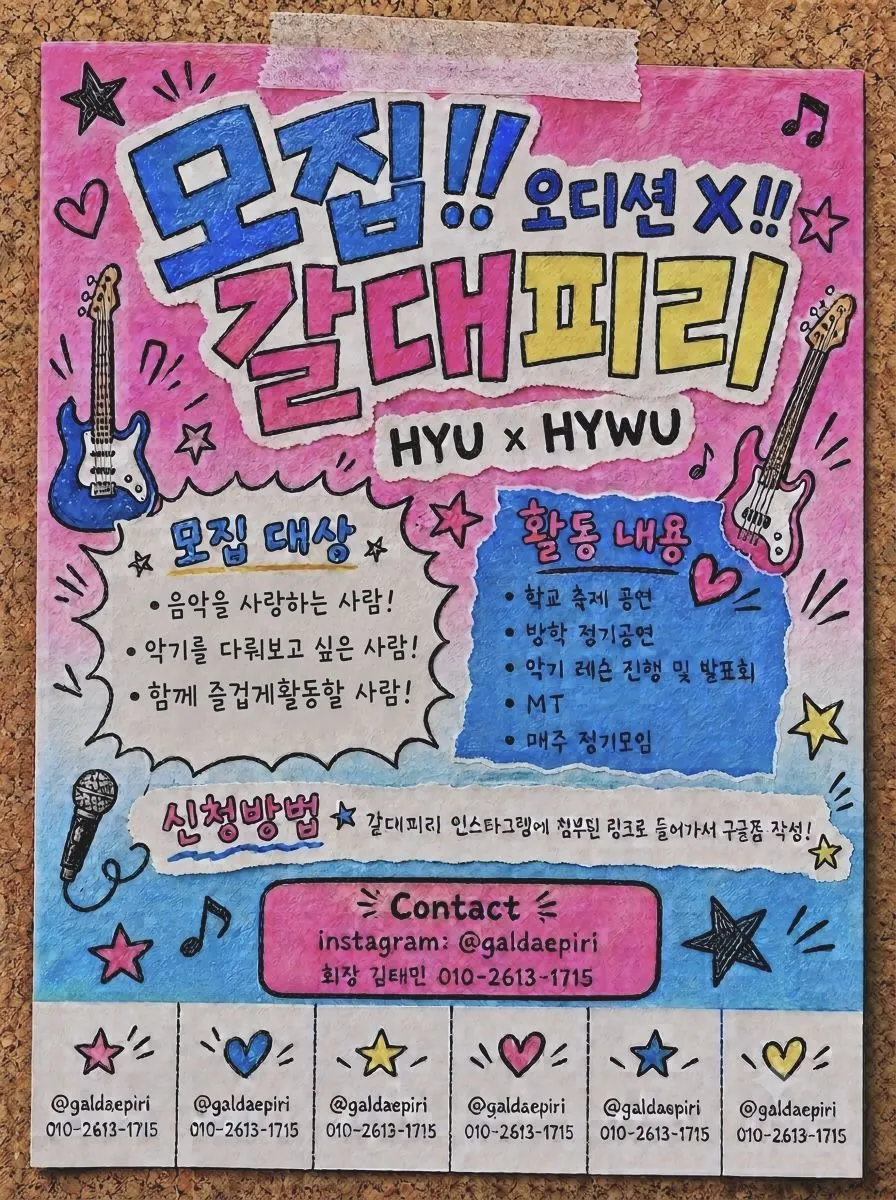 모집!! 오디션 X!!
갈대피리
HYU x HYWU
모집 대상
• 음악을 사랑하는 사람!
• 악기를 다뤄보고 싶은 사람!
• 함께 즐겁게활동할 사람!
활동 내용
• 학교 축제 공연
• 방학 정기공연
• 악기 레슨 진행 및 발표회
• MT
• 매주 정기모임
신청방법 ★ 갈대피리 인스타그램에 첨부된 링크로 들어가서 구글폼 작성!
Contact
instagram: @galdaepiri
회장 김태민 010-2613-1715
@galdaepiri
010-2613-1715
@galdaepiri
010-2613-1715
@galdaepiri
010-2613-1715
@galdaepiri
010-2613-1715
@galdaepiri
010-2613-1715
@galdaepiri
010-2613-1715